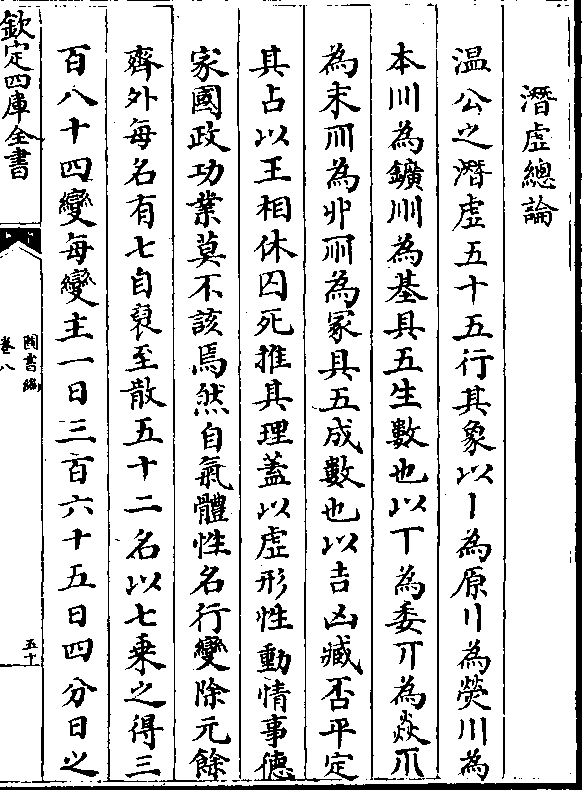 潛虛總論
温公之潛虛五十五行其象以丨為原〢為熒〣為
本𝍬為鑛𝍭為基具五生數也以丅為委𝍯為焱𝍰
為末𝍱為丱為冢具五成數也以吉凶臧否平定
其占以王相休囚死推其理蓋以虛形性動情事德
家國政功業莫不該焉然自氣體性名行變除元餘
齊外每名有七自裒至散五十二名以七乗之得三
百八十四變每變主一日三百六十五日四分日之
欽定四庫全書
圖書編
卷八
五十